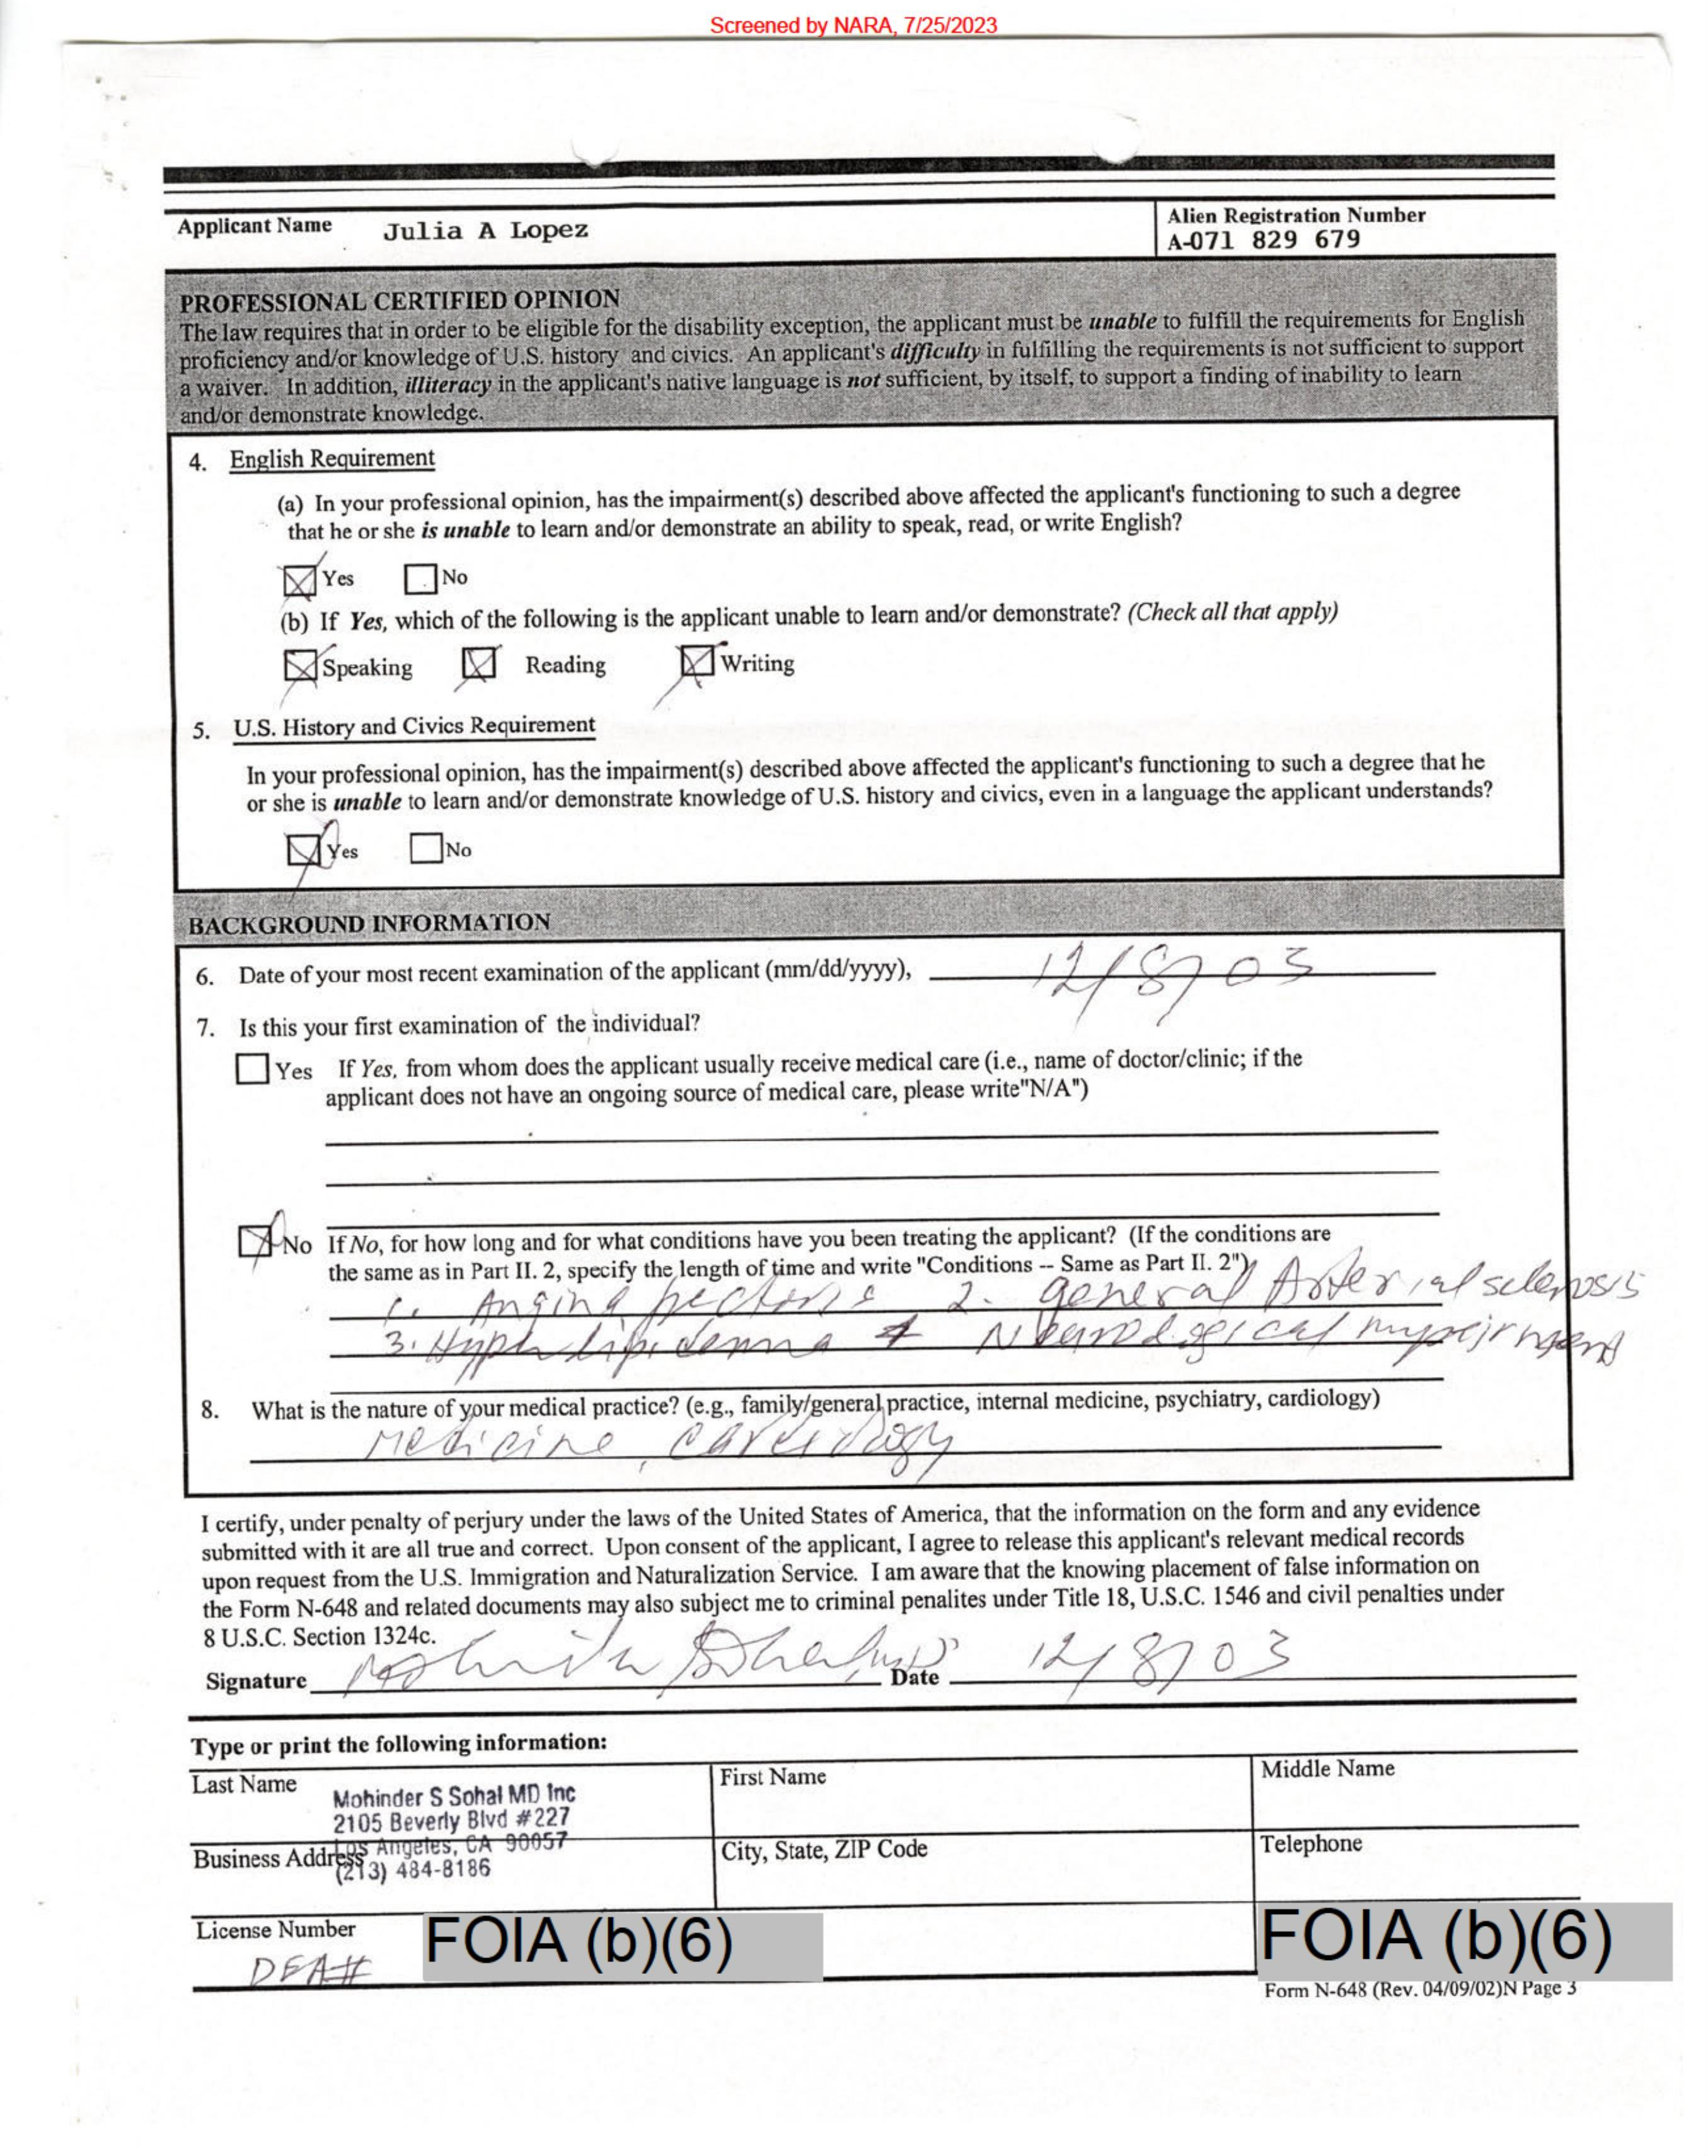 Screened by NARA, 7/25/2023
Applicant Name Julia A Lopez
Alien Registration Number
A-071 829 679
PROFESSIONAL CERTIFIED OPINION
The law requires that in order to be eligible for the disability exception, the applicant must be unable to fulfill the requirements for English
proficiency and/or knowledge of U.S. history and civics. An applicant's difficulty in fulfilling the requirements is not sufficient to support
a waiver. In addition, illiteracy in the applicant's native language is not sufficient, by itself, to support a finding of inability to learn
and/or demonstrate knowledge.
4. English Requirement
(a) In your professional opinion, has the impairment(s) described above affected the applicant's functioning to such a degree
that he or she is unable to learn and/or demonstrate an ability to speak, read, or write English?
Yes No
(b) If Yes, which of the following is the applicant unable to learn and/or demonstrate? (Check all that apply)
Speaking Reading Writing
5. U.S. History and Civics Requirement
In your professional opinion, has the impairment(s) described above affected the applicant's functioning to such a degree that he
or she is unable to learn and/or demonstrate knowledge of U.S. history and civics, even in a language the applicant understands?
Yes No
BACKGROUND INFORMATION
6. Date of your most recent examination of the applicant (mm/dd/yyyy), 12/8/03
7. Is this your first examination of the individual?
Yes If Yes, from whom does the applicant usually receive medical care (i.e., name of doctor/clinic; if the
applicant does not have an ongoing source of medical care, please write"N/A")
No If No, for how long and for what conditions have you been treating the applicant? (If the conditions are
the same as in Part II. 2, specify the length of time and write "Conditions -- Same as Part II. 2")
1. Angina pectoris 2. general Arterial sclerosis
3. 4 Neurological
8. What is the nature of your medical practice? (e.g., family/general practice, internal medicine, psychiatry, cardiology)
Medicine, cardiology
I certify, under penalty of perjury under the laws of the United States of America, that the information on the form and any evidence
submitted with it are all true and correct. Upon consent of the applicant, I agree to release this applicant's relevant medical records
upon request from the U.S. Immigration and Naturalization Service. I am aware that the knowing placement of false information on
the Form N-648 and related documents may also subject me to criminal penalites under Title 18, U.S.C. 1546 and civil penalties under
8 U.S.C. Section 1324c.
Signature Date 12/8/03
Type or print the following information:
Last Name First Name Middle Name
Mohinder S Sohal MD Inc
2105 Beverly Blvd #227
Los Angeles, CA 90057
Business Address City, State, ZIP Code Telephone
(213) 484-8186
License Number
DEA# FOIA (b)(6) FOIA (b)(6)
Form N-648 (Rev. 04/09/02)N Page 3